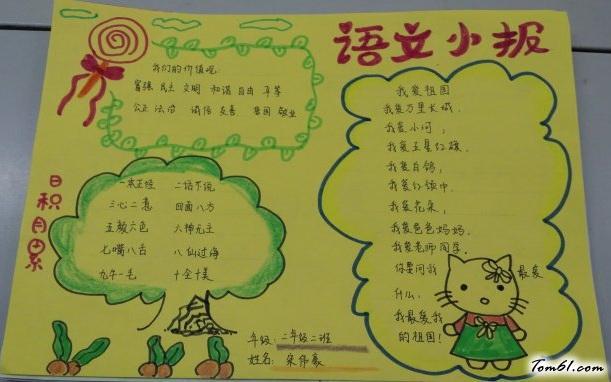 语文小报
我们的价值观:
富强 民主 文明 和谐 自由 平等
公正 法治 诚信 友善 爱国 敬业
日积月累
一本正经 二话不说
三心二意 四面八方
五颜六色 六神无主
七嘴八舌 八仙过海
九牛一毛 十全十美
我爱祖国
我爱万里长城,
我爱小河,
我爱五星红旗,
我爱白鸽,
我爱红领巾,
我爱花朵,
我爱爸爸妈妈,
我爱老师同学,
你要问我 最爱
什么,
我最爱我
的祖国!
年级:二年级二班
姓名:
Tom61.com